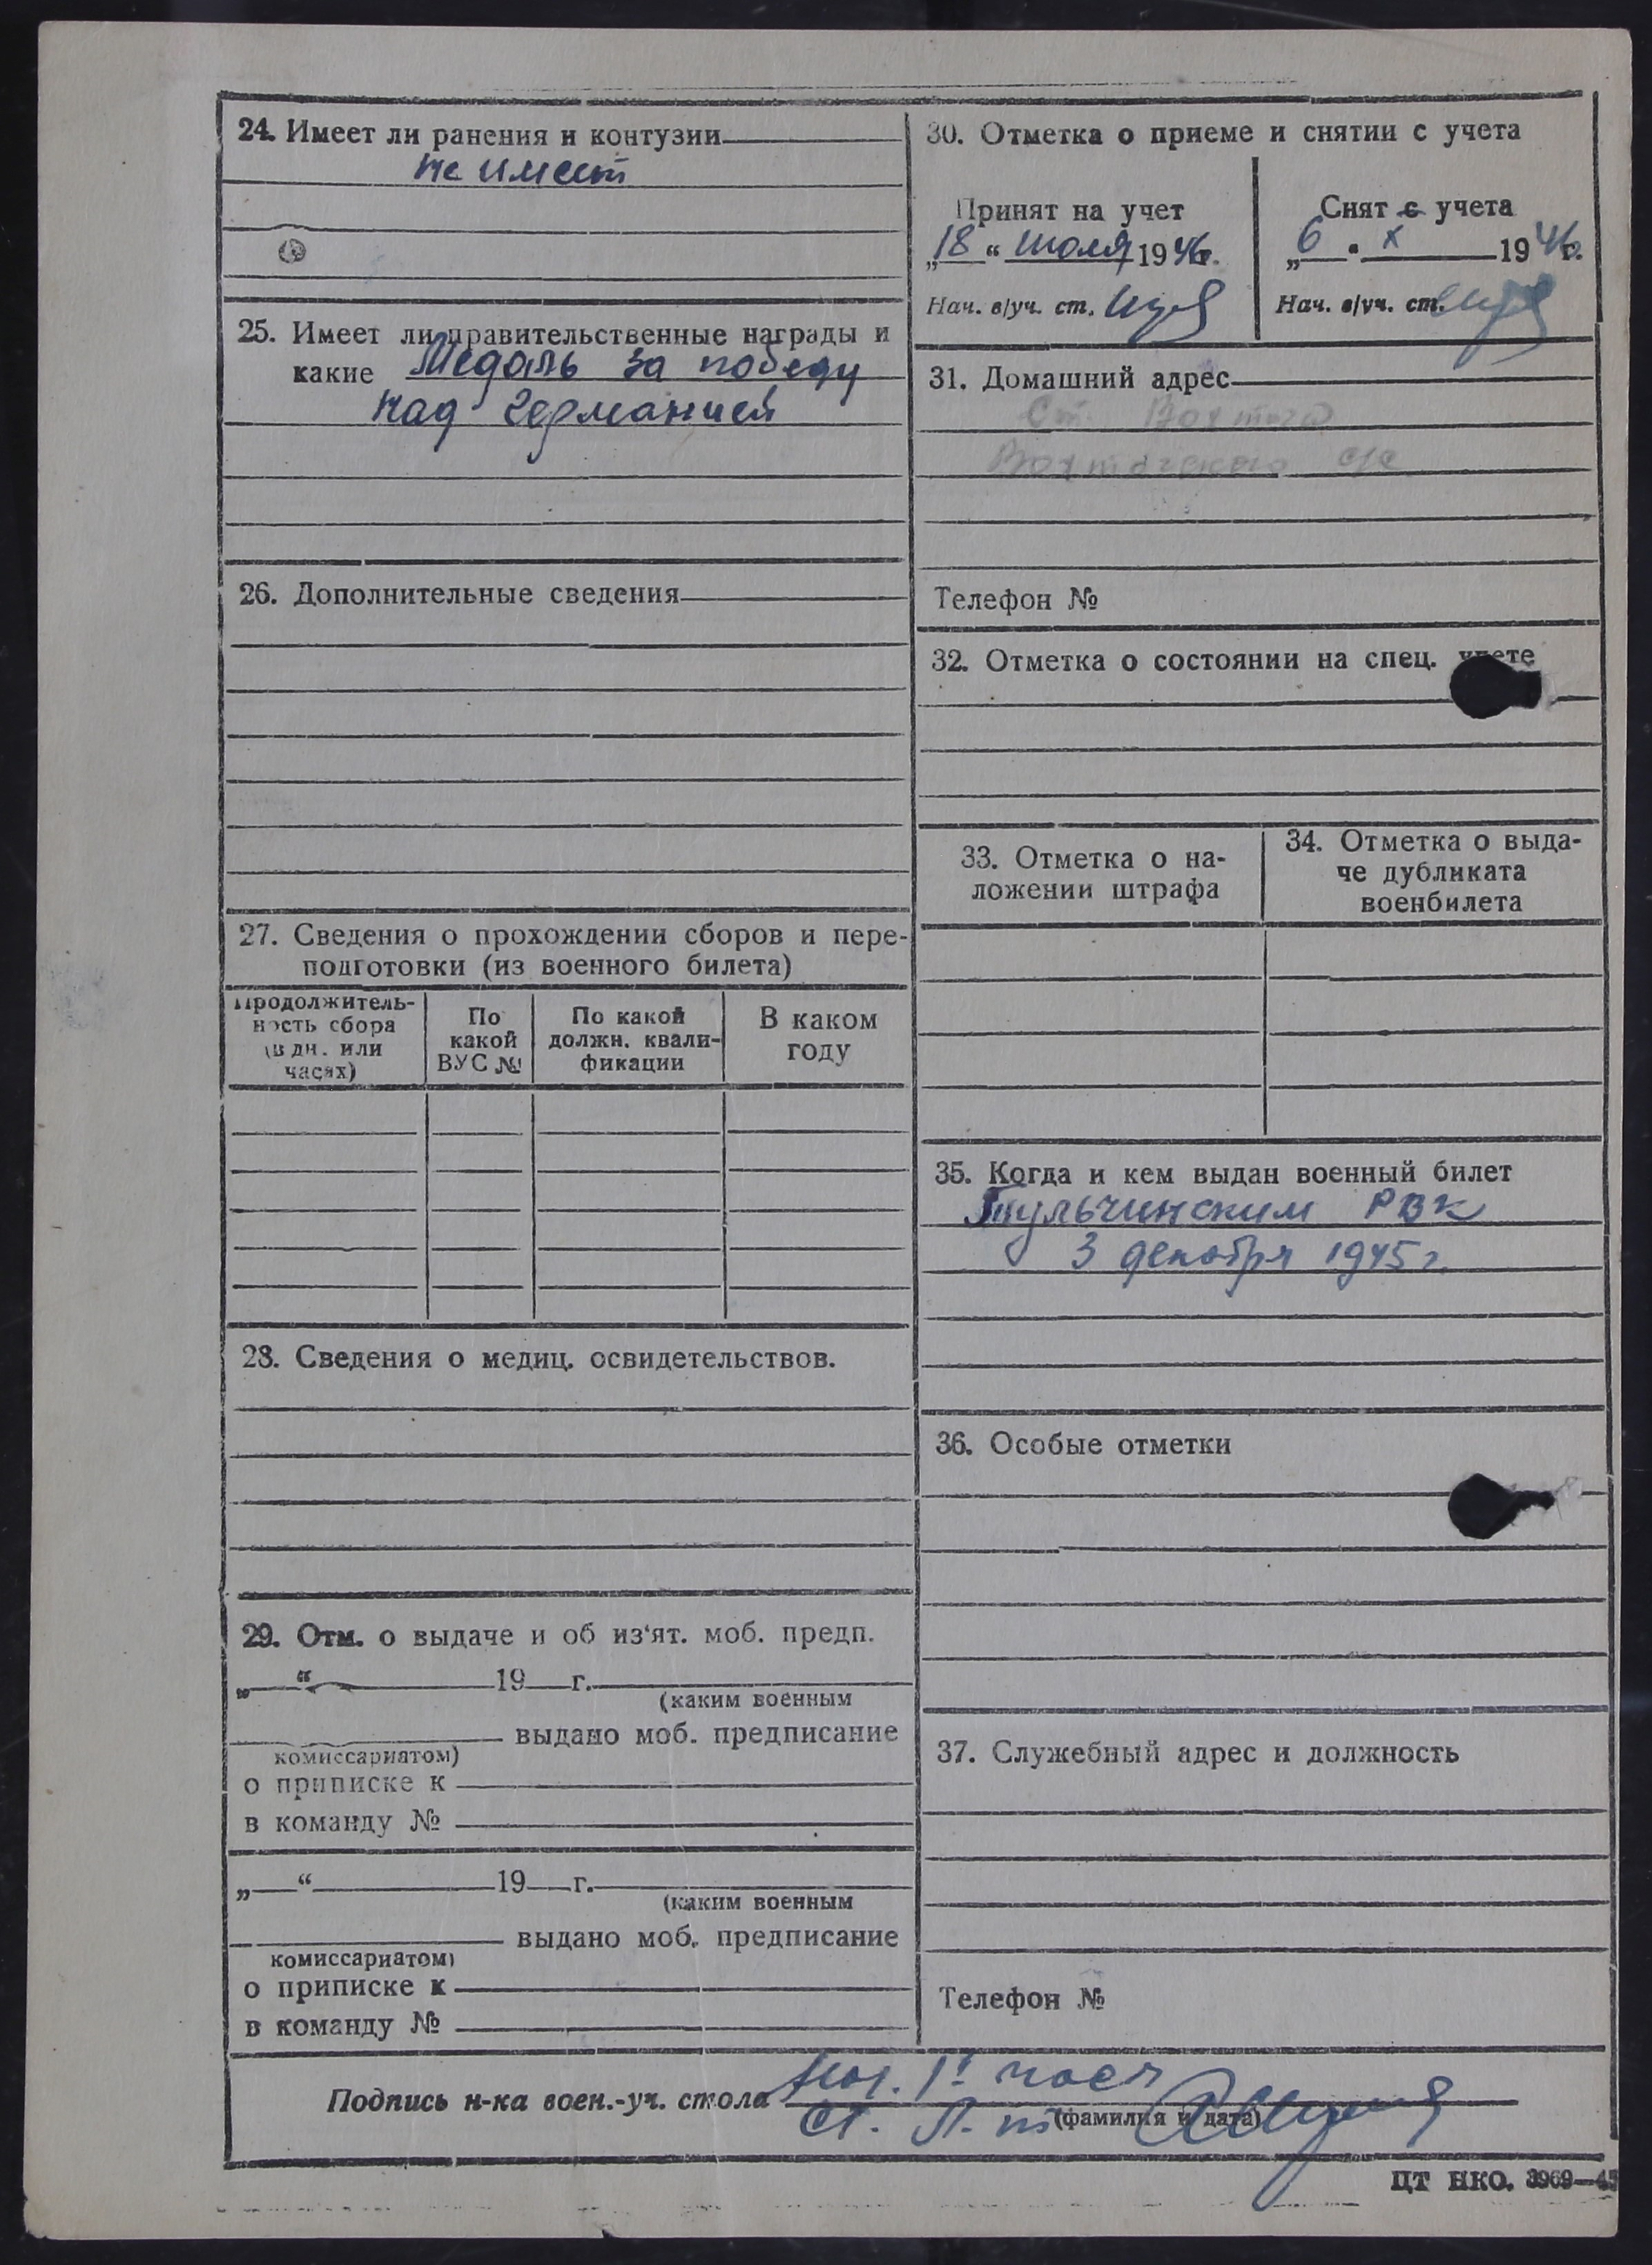 24. Имеет ли ранения и контузии
не имеет
25. Имеет ли правительственные награды и
какие Медаль за победу
над Германией
26. Дополнительные сведения
27. Сведения о прохождении сборов и пере-
подготовки (из военного билета)
Продолжитель-
ность сбора
(в дн. или
часах)
По
какой
ВУС №
По какой
должн. квали-
фикации
В каком
году
28. Сведения о медиц. освидетельствов.
29. Отм. о выдаче и об из‘ят. моб. предп.
„ “ 19 г.
(каким военным
выдано моб. предписание
комиссариатом)
о приписке к
в команду №
„ “ 19 г.
(каким военным
выдано моб. предписание
комиссариатом)
о приписке к
в команду №
30. Отметка о приеме и снятии с учета
Принят на учет
„18 “ июля 1946г.
Нач. в/уч. ст.
Снят с учета
„6 “ X 1946г.
Нач. в/уч. ст.
31. Домашний адрес
Ст. Вохтога
Вохтогского с/с
Телефон №
32. Отметка о состоянии на спец. учете
33. Отметка о на-
ложении штрафа
34. Отметка о выда-
че дубликата
военбилета
35. Когда и кем выдан военный билет
Тульчинским РВК
3 декабря 1945 г.
36. Особые отметки
37. Служебный адрес и должность
Телефон №
Подпись н-ка воен.-уч. стола Нач. 1й част
ст. л-нт
(фамилия и дата)
ЦТ НКО. 3969—45